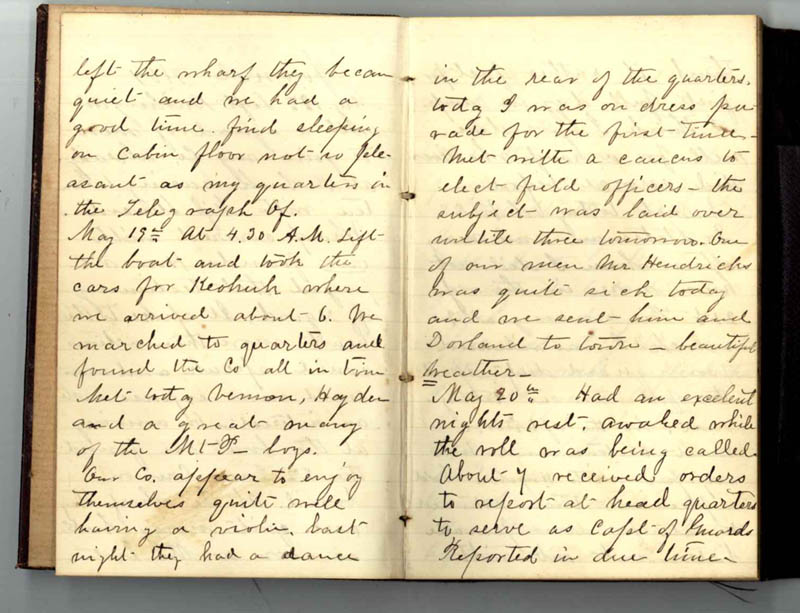 left the wharf they becam
quiet and we had a
good time. find sleeping
on cabin floor not so ple-
asant as my quarters in
the Telegraph Of.
May 19th At 4.30 A.M. Left
the boat and took the
cars for Keokuk where
we arrived about 6. We
marched to quarters and
found the Co all in trim
Met today Vernon, Hayden
and a great many
of the Mt P– boys.
Our Co. appear to enjoy
themselves quite well
having a violin. Last
night they had a dance
in the rear of the quarters.
today I was on dress pa-
rade for the first time –
Met with a caucus to
elect field officers – the
subject was laid over
untile three tomorrow. One
of our men Mr Hendricks
was quite sick today
and we sent him and
Dorland to town – beautiful
weather –
May 20th Had an excelent
nights rest. awaked while
the roll was being called.
About 7 received orders
to report at head quarters
to serve as Capt of Guards
Reported in due time –